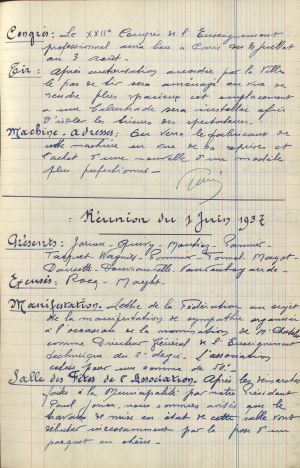 Congrès : Le XXIIe Congrès de l'Enseignement
professionnel aura lieu à Paris du 31 juillet
au 3 août.
Tir : Après autorisation accordée par la Ville
le pas de tir sera aménagé en vue de
rendre plus spacieux cet emplacement
une balustrade sera installée afin
d'isoler les tireurs des spectateurs.
Machine à adresses : On verra le fabricant de
cette machine en vue de sa reprise et
l'achat d'une nouvelle d'un modèle
plus perfectionné -
Réunion du 1 Juin 1937
Présents :
Wagner - Pommier - Magot
Excusés : Rocq -
Manifestation. Lettre de la Fédération au sujet
de la manifestation de sympathie organisée
à l'occasion de la nomination de Mr
comme Directeur Général de l'Enseignement
technique du 2e degré. L'association
pour une somme de 50.-
Salle des Fêtes de l'Association. Après les démarches
faites à la Municipalité par notre Président
Paul nous sommes avisés que les
travaux de mise en état de cette salle vont
débuter incessamment par la pose d'un
parquet en chêne.